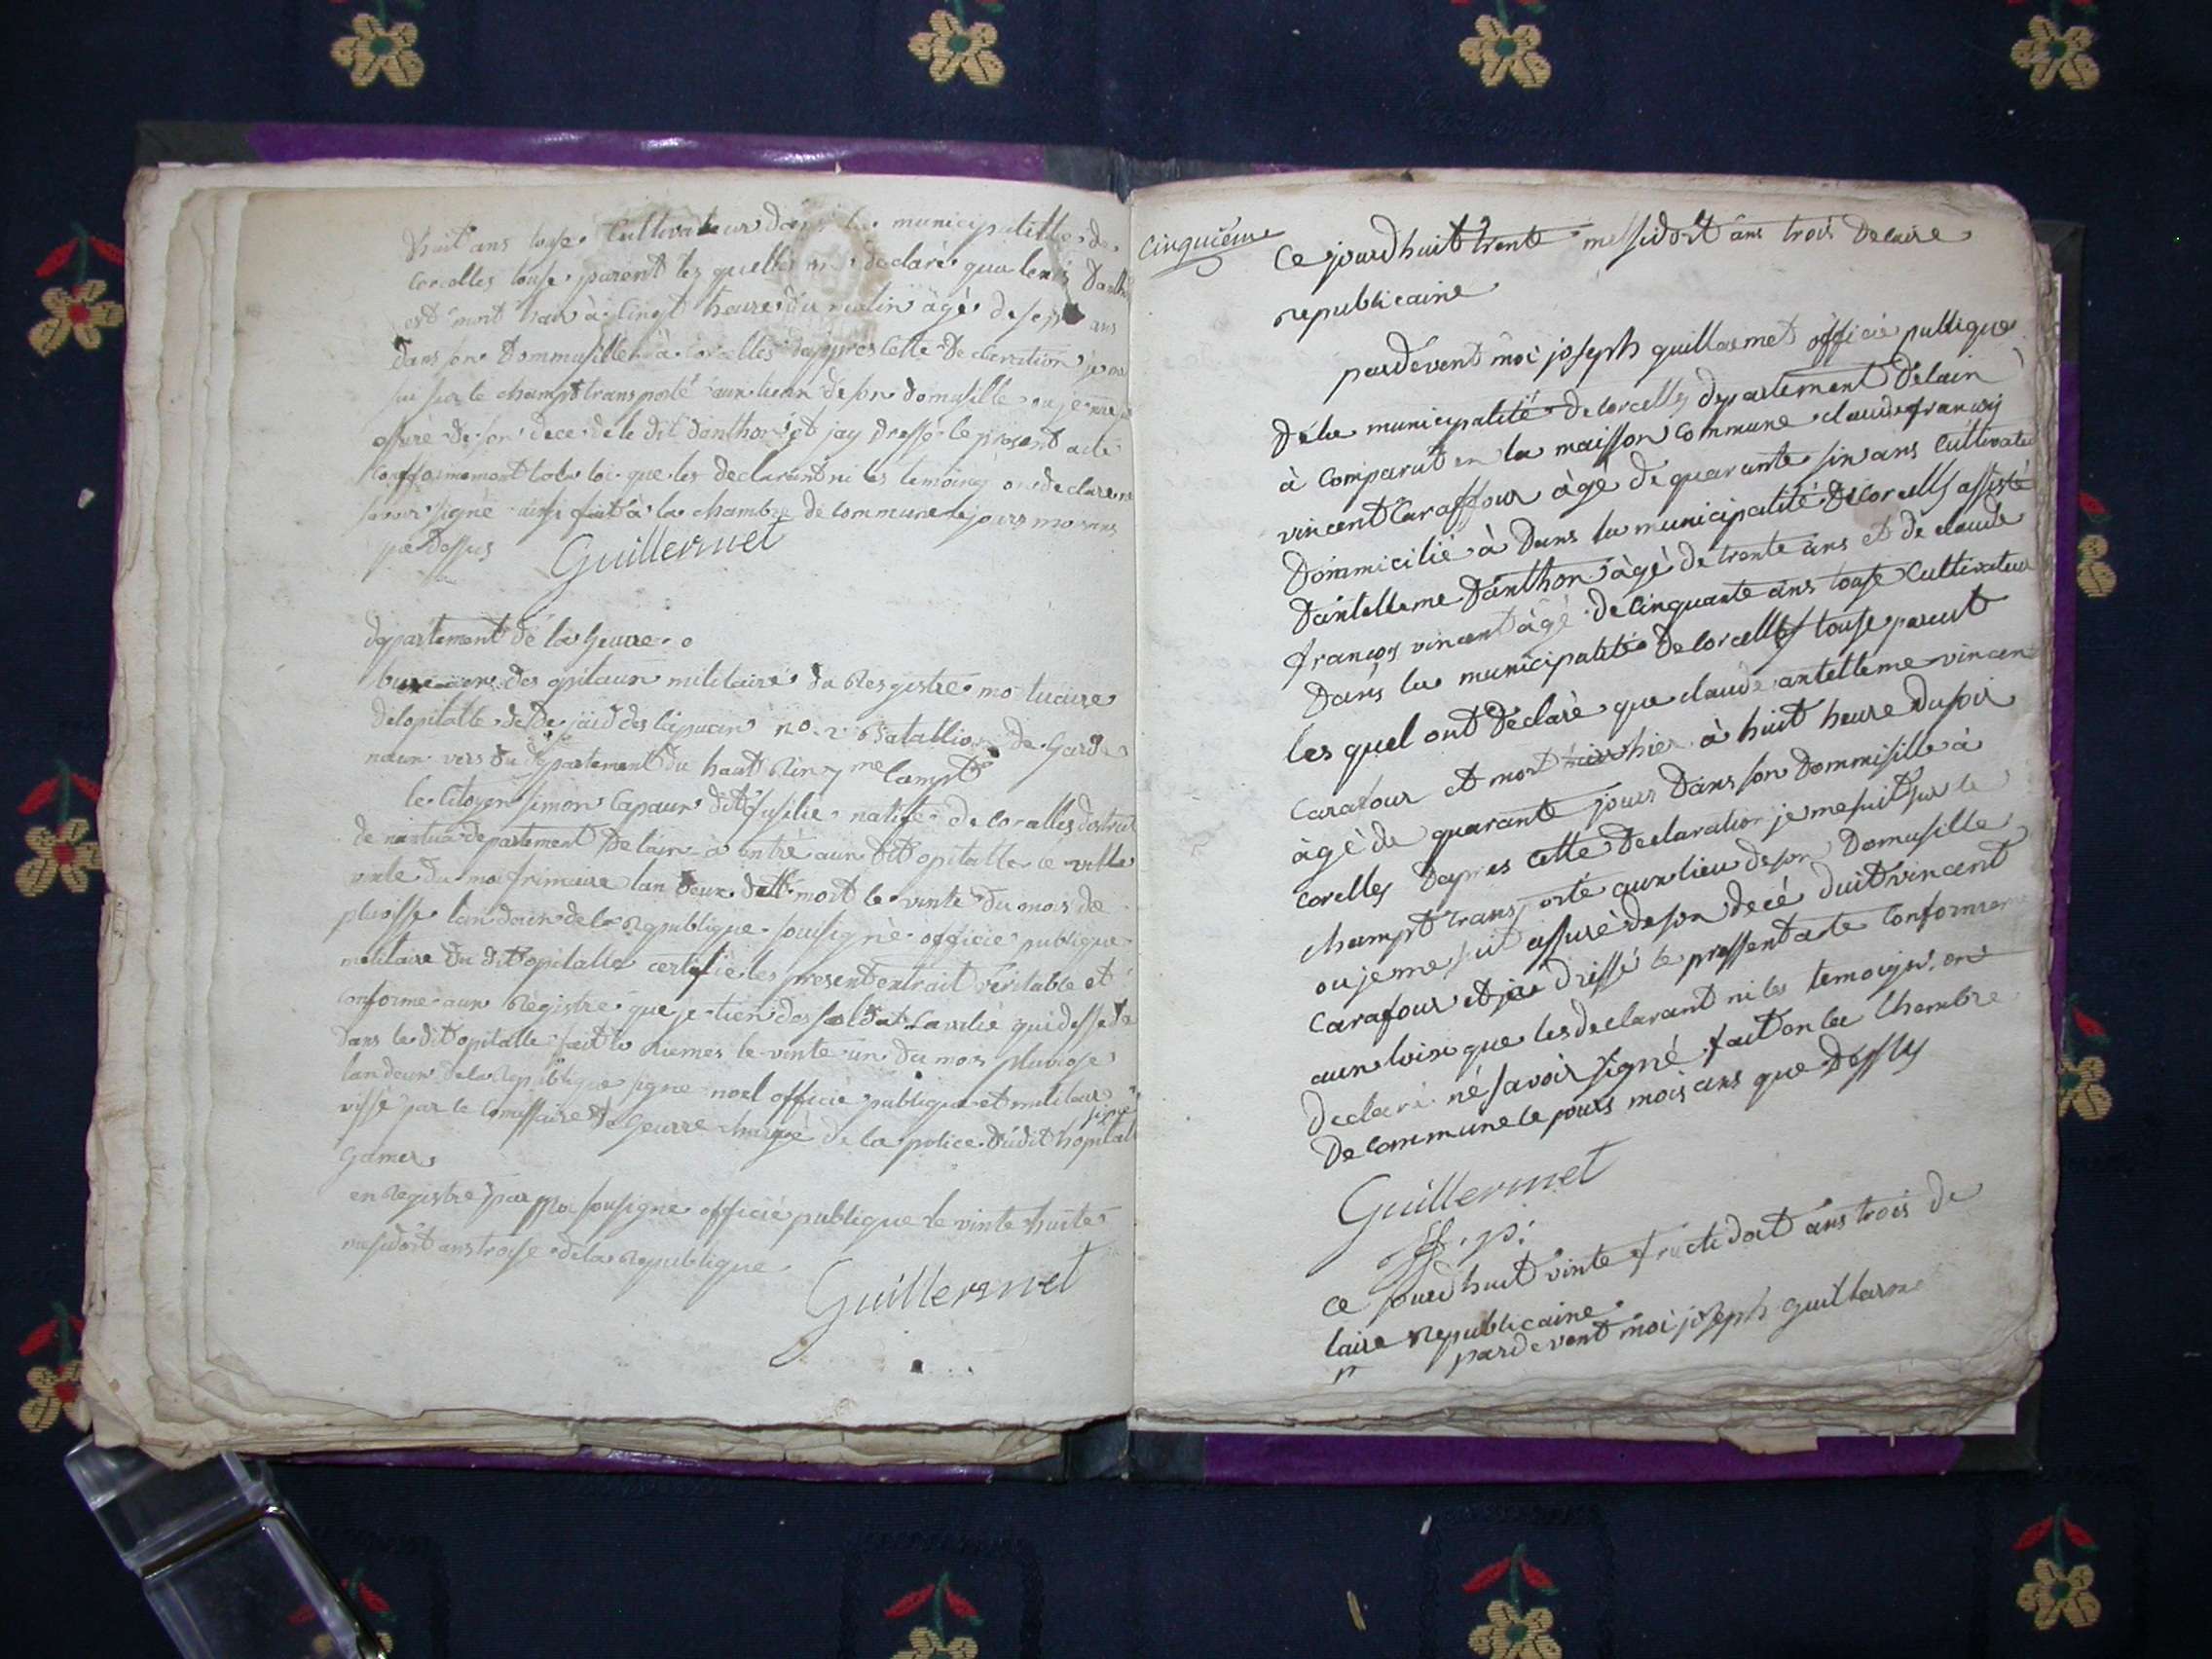 huit ans touse Cultivateur dans la municipalitté de
Corcelles touse parent les quelles declaré que
est mort hier à Cinqt heure du matin âgé de sept ans
dans son Dommusille à Corcelles dapres Cette Declaration je me
sui sur le champt transporté aux lieux de son domusille ou je me
assuré de son decé de le dit danthon et jay Dressé le present acte
Confformement que les declarant ni les temoing on declare ne
savoir signé ainsi fait à la chambre de Commune le jours mois ans
que Dessus Guillermet
departement dé la Geurre
bureau des opitaux militaire du Resgistre mortuaire
delopitalle des Capucin no. 2 Batallion de Garde
naux vers du departement du haut Rin 7 me Campt
le Citoyen simon Capaux dit fusilie natife de Corcelles distrut
de nantua departement Delain a entré aux dit opitalle ce
vinte du moi frimaire lan deux mort le vinte du mois de
pluosse lan doux de la Republique sousigné officié publique
militaire du dit opitalle certifie les present extrait véritable et
Conforme aux Régistre que je tien des soldat Cavalié qui dessede
dans le dit opitalle fait le vinte un du mois pluviose
lan deux de la Republique signe noel officié publique et militair
visse par le Comissaire de Geurre chargé de la police dudit hopital signé
Gamer
en Registre par moi sousigné officié publique le vinte huite
mesidort ans troise de la Republique
Guillermet
Cinquiéme
Ce jourdhuit trente messidort ans trois De laire
republicaine
pardevent moi joseph guillermet officié publique
De la municipalité de Corcelles departement Delain
à Comparut en la maisson Commune claude françois
vincent Caraffour âgé de quarante six ans Cultivateu
Dommicilié à Dans la municipalité de Corcells assisté
Dantelleme Danthon âgé de trente ans et de claude
françois vincent âgé de Cinquante ans touse Cultivateur
Dans la municipalité de Corcelles touse parent
les quel ont Déclaré que claude antelleme vincent
Carafour et mort hier à huit heure du soir
âgé de quarante jours Dans son Dommisille à
Corelles Dapres Cette Declaration je me suit sur le
champt transporté aux lieu de son Domusille
ou je me suit assuré de son decé duit vincent
Carafour et jai dréssé le pressent acte Conformeme
aux loix que les declarant ni les temoigs on
declaré né savoir signé fait en la Chembre
De Commune le jours mois ans que Dessus
Guillermet
ff. p.
Ce jourdhuit vinte fructidort ans trois de
laire Republicaine
pardevent moi joseph guillerme